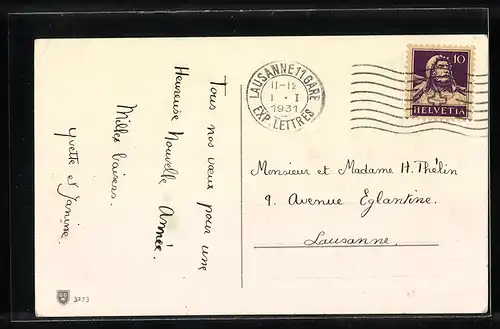 Tous nos vœux pour une
Heureuse Nouvelle Année.
Milles baisers.
Yvette et Janine.
LAUSANNE 11 GARE
11-12
1 · I
1931
EXP. LETTRES
10
HELVETIA
Monsieur et Madame H. Thélin
9. Avenue Eglantine.
Lausanne.
3573